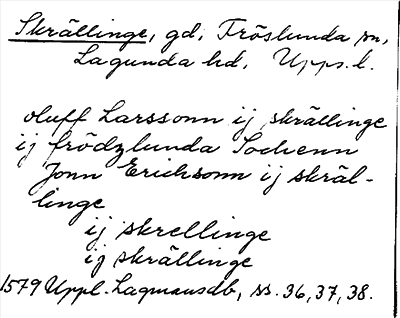 Skrällinge, gd, Fröslunda sn,
Lagunda hd, Upps. l.
oluff Larssonn ij skrällinge
ij frödzlunda Sochenn
Jonn Erichsonn ij skräl-
linge
ij skrellinge
ij skrällinge
1579 Uppl. Lagmansdb, ss. 36, 37, 38.